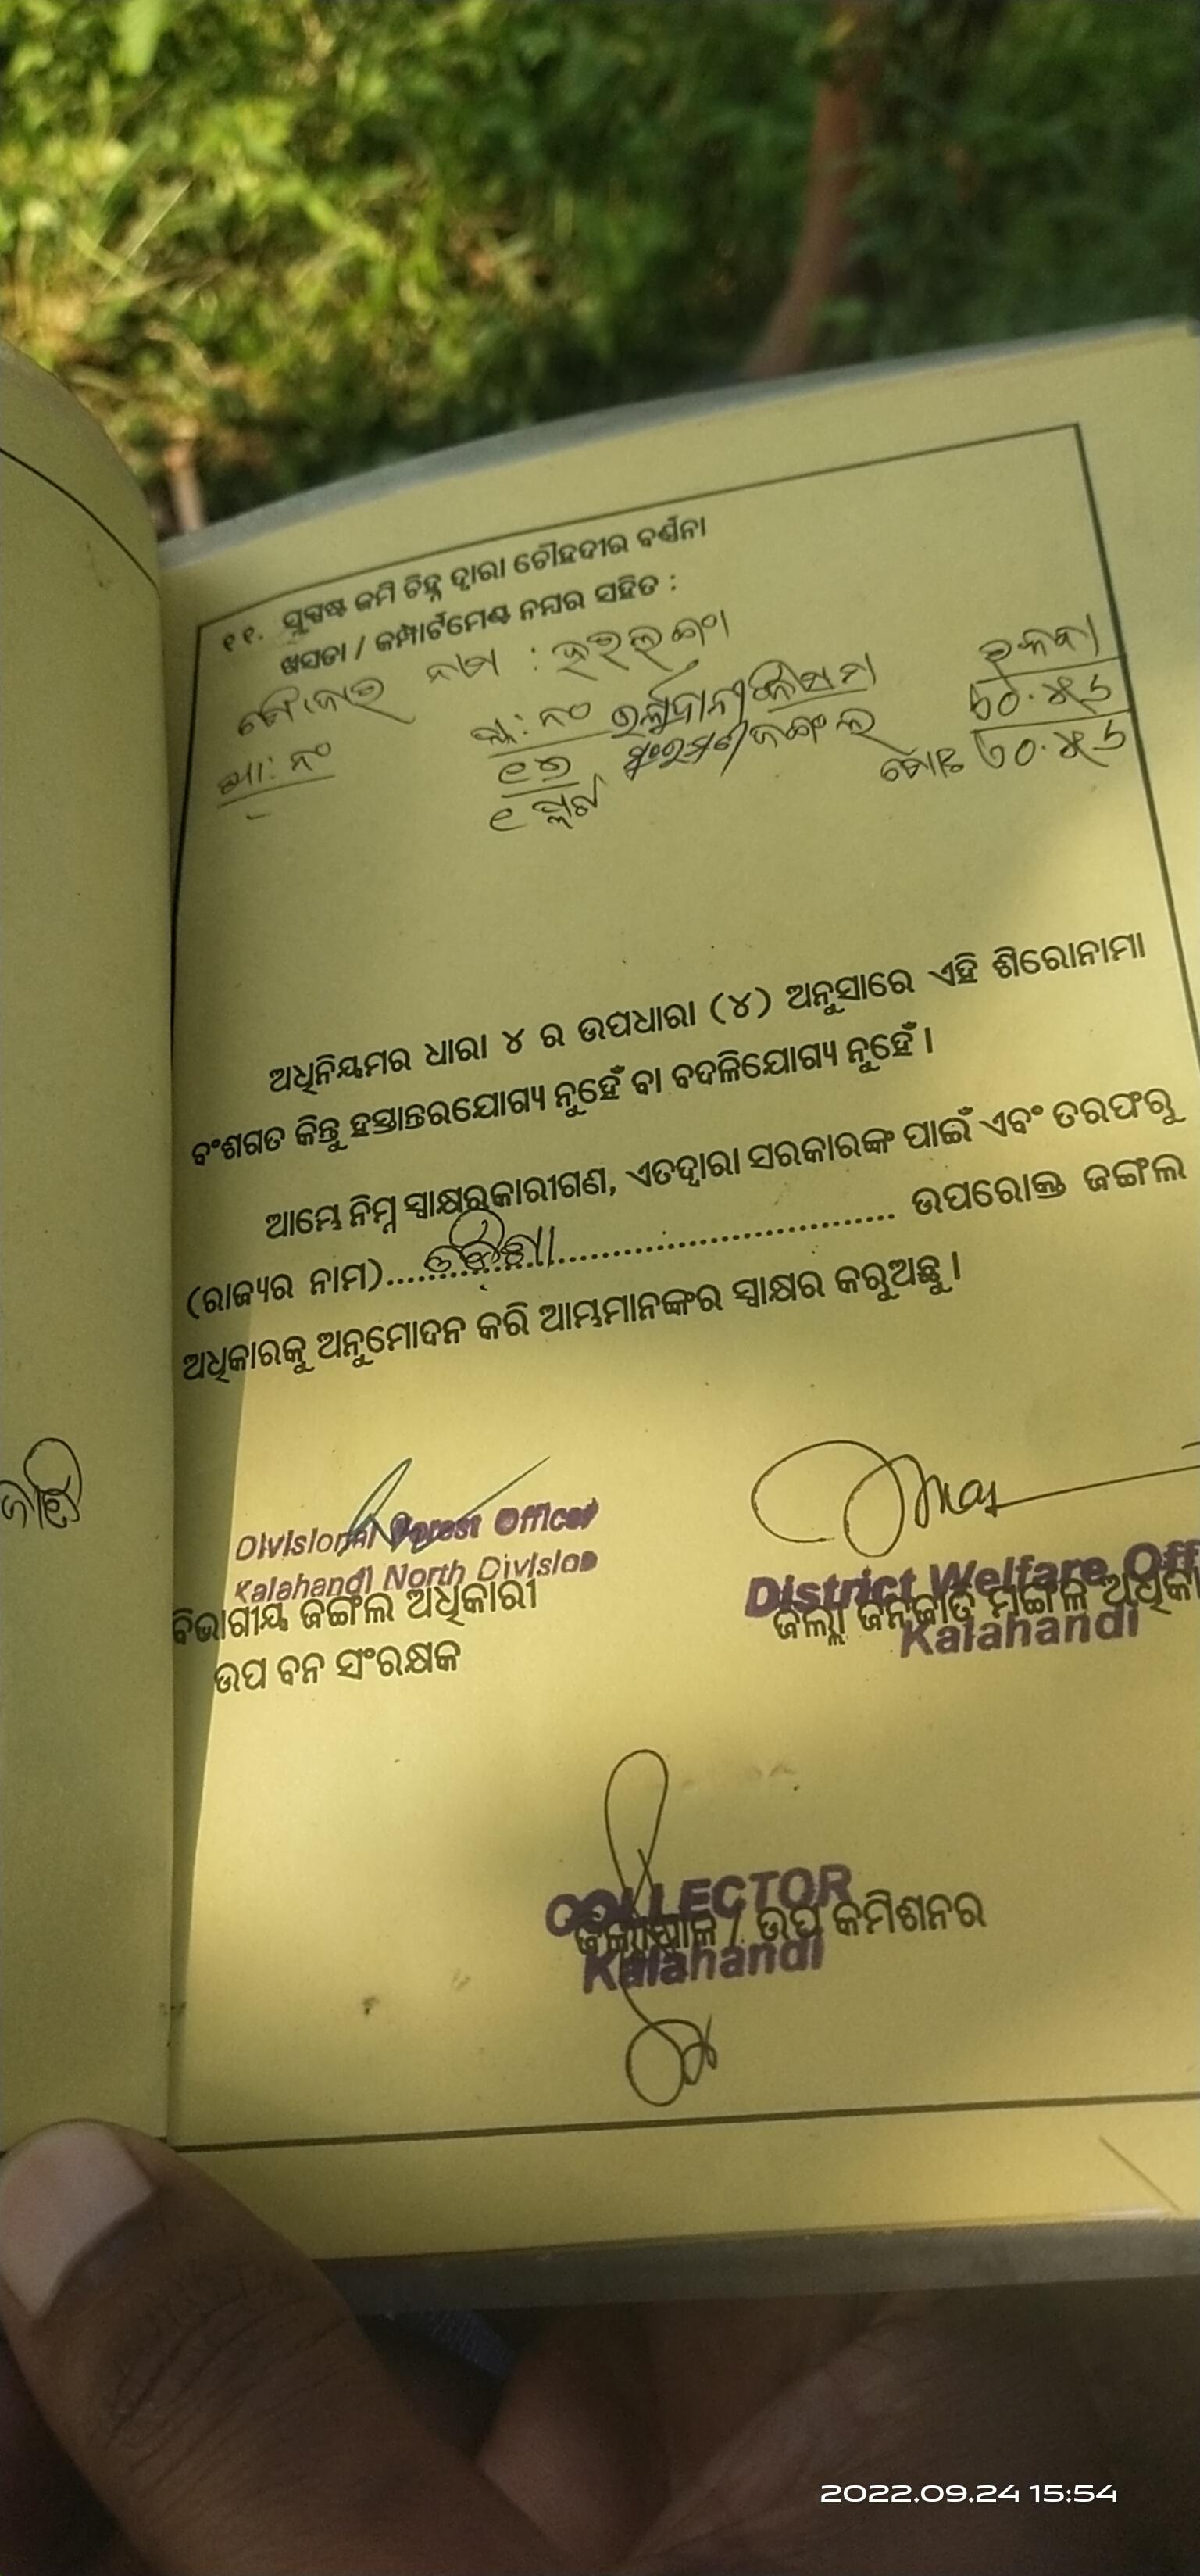 ୧୧. ସୁସ୍ପଷ୍ଟ ଜମି ଚିହ୍ନ ଦ୍ୱାରା ଚୌହଦୀର ବର୍ଣ୍ଣନା
ଖସଡା / କମ୍ପାର୍ଟମେଣ୍ଟ ନମ୍ବର ସହିତ :
ନାମ :
ରକବା
ନଂ ନଂ କିସମ
ଜଙ୍ଗଲ
୧ ପ୍ଲଟ
ଅଧିନିୟମର ଧାରା ୪ ର ଉପଧାରା (୪) ଅନୁସାରେ ଏହି ଶିରୋନାମା
ବଂଶଗତ କିନ୍ତୁ ହସ୍ତାନ୍ତରଯୋଗ୍ୟ ନୁହେଁ ବା ବଦଳିଯୋଗ୍ୟ ନୁହେଁ ।
ଆମ୍ଭେ ନିମ୍ନ ସ୍ୱାକ୍ଷରକାରୀଗଣ, ଏତଦ୍ୱାରା ସରକାରଙ୍କ ପାଇଁ ଏବଂ ତରଫରୁ
(ରାଜ୍ୟର ନାମ)....ଓଡିଶା.... ଉପରୋକ୍ତ ଜଙ୍ଗଲ
ଅଧିକାରକୁ ଅନୁମୋଦନ କରି ଆମ୍ଭମାନଙ୍କର ସ୍ୱାକ୍ଷର କରୁଅଛୁ ।
Divisional Forest Officer
Kalahandi North Division
ବିଭାଗୀୟ ଜଙ୍ଗଲ ଅଧିକାରୀ
ଉପ ବନ ସଂରକ୍ଷକ
District Welfare Off
ଜିଲ୍ଲା ଜନଜାତି ମଙ୍ଗଳ ଅଧିକା
Kalahandi
COLLECTOR
ଜିଲ୍ଲାପାଳ / ଉପ କମିଶନର
Kalahandi
2022.09.24 15:54